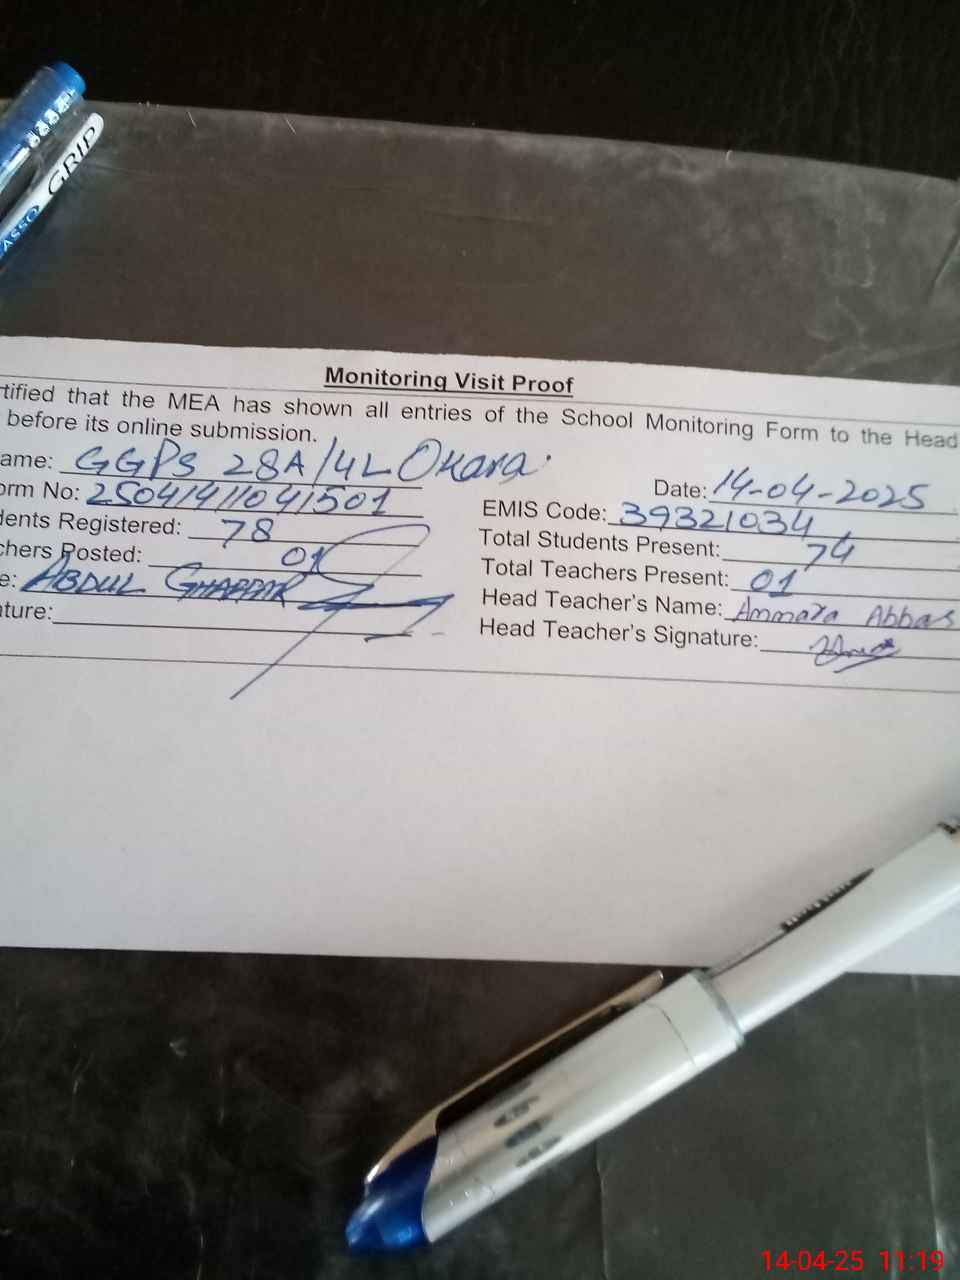 GRIP
ASSO
Monitoring Visit Proof
tified that the MEA has shown all entries of the School Monitoring Form to the Head
before its online submission.
ame: GGPS 28A/4L Okara.
Date: 14-04-2025
orm No: 25041411041501
EMIS Code: 39321034
dents Registered: 78
Total Students Present: 74
chers Posted: 01
Total Teachers Present: 01
e: ABDUL GHAFFAR
Head Teacher's Name: Ammara Abbas
ture:
Head Teacher's Signature:
14-04-25 11:19